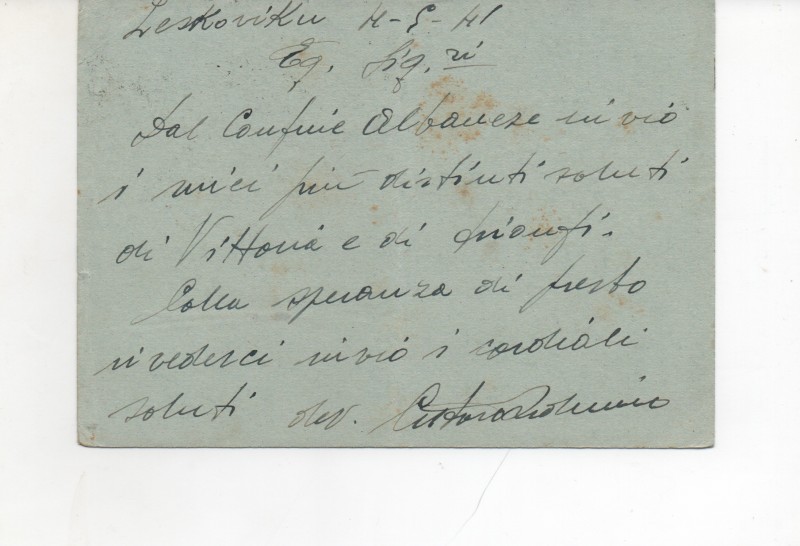 Leskoviku 4-5-41
Eg. Sig.ri
Dal Confine Albanese invio
i miei più distinti saluti
di Vittoria e di trionfi.
Colla speranza di presto
rivederci invio i cordiali
saluti dev.